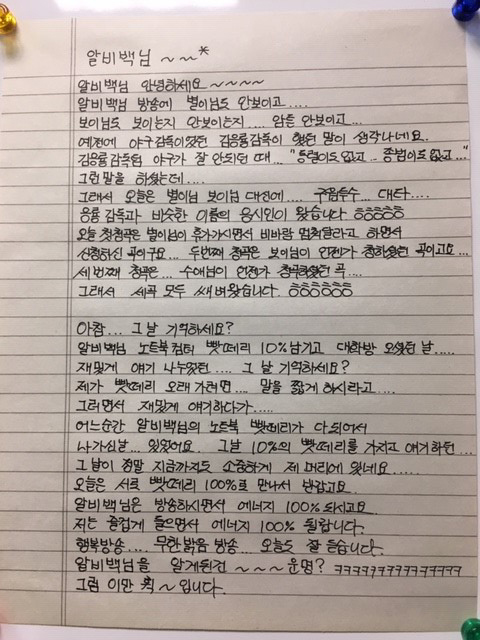 알비백님 ~~*
알비백님 안녕하세요 ~~~~
알비백님 방송에 별이님도 안보이고....
보이님도 보이는지 안보이는지.... 암튼 안보이고...
예전에 야구감독이었던 김응룡감독이 했던 말이 생각나네요.
김응룡감독님 야구가 잘 안되던 때... "동렬이도 없고.. 종범이도 없고..."
그런 말을 하셨는데....
그래서 오늘은 별이님 보이님 대신에.... 구원투수... 대타....
응룡 감독과 비슷한 이름의 응시인이 왔습니다 ㅎㅎㅎㅎㅎ
오늘 첫청곡은 별이님이 휴가가시면서 비바람 멈춰달라고 하면서
신청하신 곡이구요... 두번째 청곡은 보이님이 언젠가 청하셨던 곡이고요...
세번째 청곡은... 수애님이 언젠가 청곡하셨던 곡....
그래서 세곡 모두 쌔벼왔습니다. ㅎㅎㅎㅎㅎㅎ
아참... 그 날 기억하세요?
알비백님 노트북컴터 빳떼리 10%남기고 대화방 오셨던 날.....
재밌게 얘기 나누었던.... 그 날 기억하세요?
제가 빳떼리 오래 가려면.... 말을 짧게 하시라고....
그러면서 재밌게 얘기하다가.....
어느순간 알비백님의 노트북 빳떼리가 다 되어서
나가신날... 있었어요. 그날 10%의 빳떼리를 가지고 얘기하던...
그 날이 정말 지금까지도 소중하게 제 머리에 있네요.....
오늘은 서로 빳떼리 100%로 만나서 반갑고요.
알비백님은 방송하시면서 에너지 100% 되시고요.
저는 즐겁게 들으면서 에너지 100% 됩니다.
행복방송.... 무한밝음 방송... 오늘도 잘 듣습니다.
알비백님을 알게된건 ~~~ 운명? ㅋㅋㅋㅋㅋㅋㅋㅋㅋㅋㅋㅋㅋㅋ
그럼 이만 휙~ 입니다.